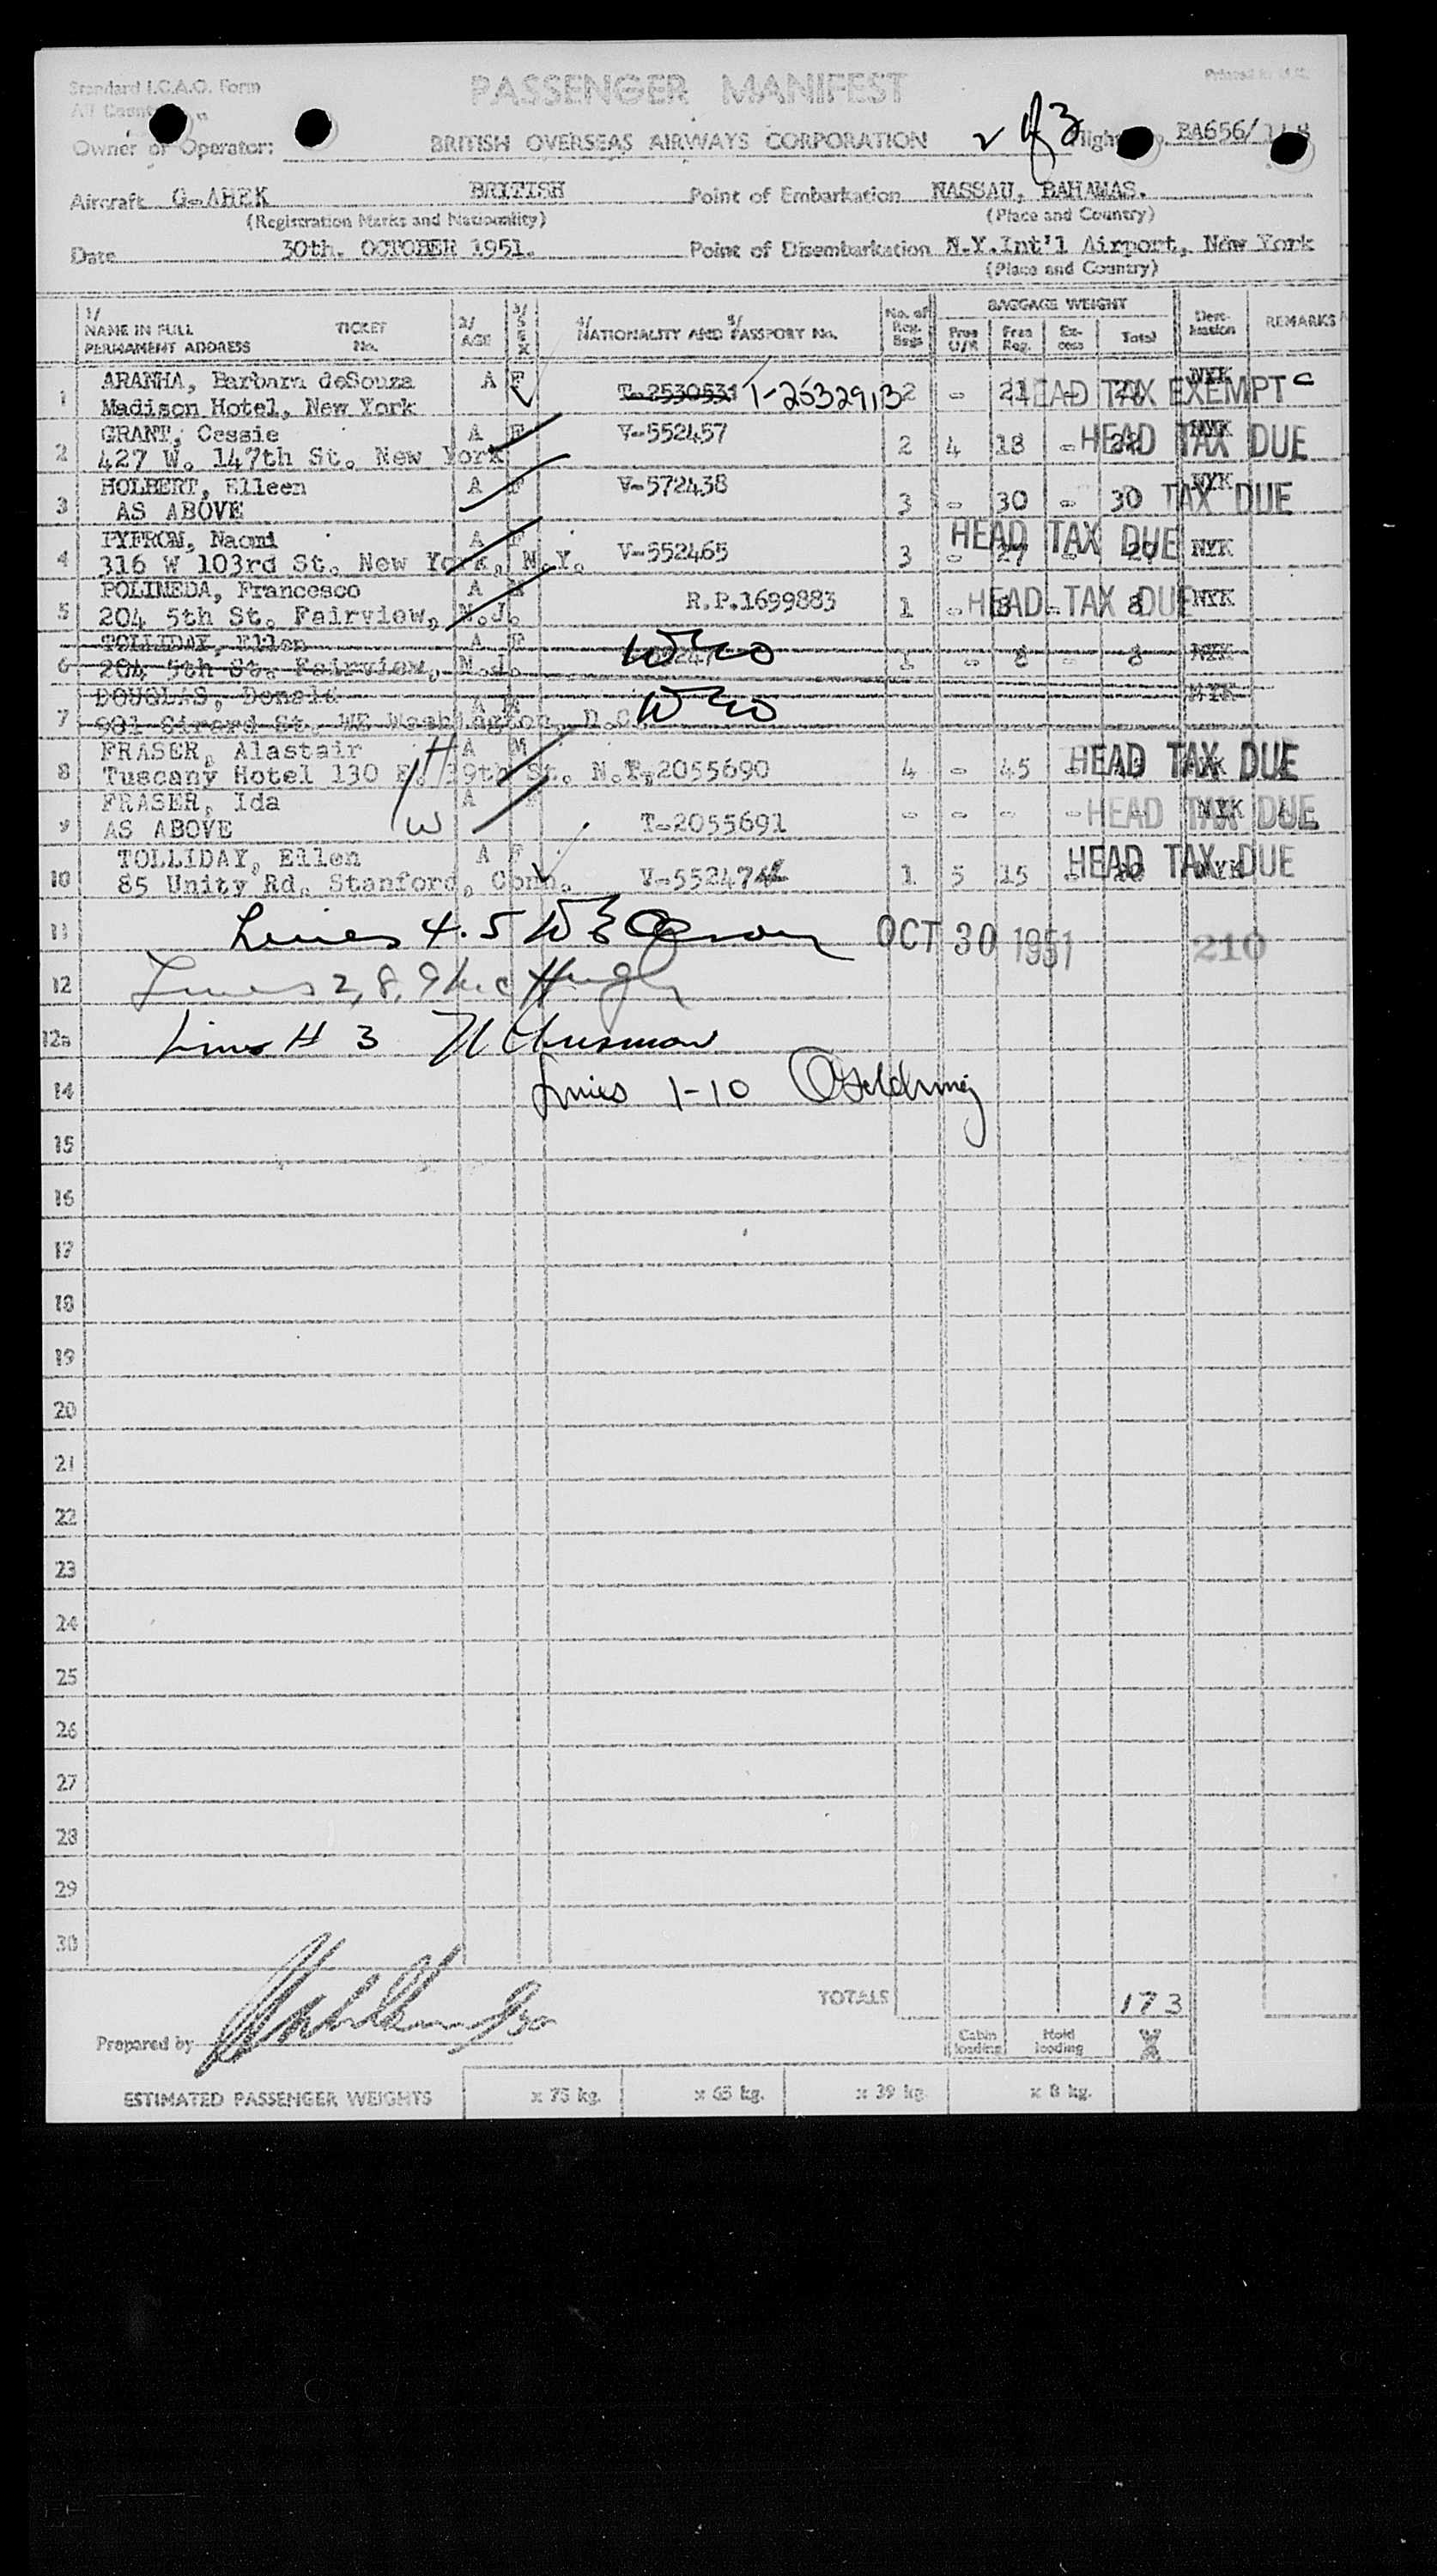 Standard I.C.A.O. Form
PASSENGER MANIFEST
Printed in U.K.
Owner or Operator: BRITISH OVERSEAS AIRWAYS CORPORATION 2 of 3 Flight BA656/
Aircraft G-AHEK BRITISH Point of Embarkation NASSAU, BAHAMAS.
(Registration Marks and Nationality) (Place and Country)
Date 30th. OCTOBER 1951. Point of Disembarkation N.Y.Int'l Airport, New York
(Place and Country)
1/ NAME IN FULL PERMANENT ADDRESS TICKET No. 2/ AGE 3/ SEX 4/ NATIONALITY AND 5/ PASSPORT No. No. of Reg. Bags BAGGAGE WEIGHT Free U/R Free Reg. Ex-cess Total Dest-ination REMARKS
1 ARANHA, Barbara deSouza A F T-2530531 T-2532913 2 - 21 - 21 NYK HEAD TAX EXEMPT C
Madison Hotel, New York
2 GRANT, Cessie A F V-552457 2 4 18 - 22 NYK HEAD TAX DUE
427 W. 147th St. New York
3 HOLBERT, Elleen A F V-572438 3 - 30 - 30 NYK TAX DUE
AS ABOVE
4 FYFROM, Naomi A F V-552465 3 - 27 - 27 NYK HEAD TAX DUE
316 W 103rd St. New York, N.Y.
5 POLIMEDA, Francesco A M R.P.1699883 1 - 8 - 8 NYK HEAD TAX DUE
204 5th St. Fairview, N.J.
6 TOLLIDAY, Ellen A F 1 - 8 - 8 NYK
204 5th St. Fairview, N.J.
7 DOUGLAS, Donald A M NYK
901 Girard St. NE Washington, D.C.
8 FRASER, Alastair H A M T-2055690 4 - 45 - HEAD TAX DUE
Tuscany Hotel 130 E. 39th St. N.Y.
9 FRASER, Ida W A T-2055691 - - - - NYK HEAD TAX DUE
AS ABOVE
10 TOLLIDAY, Ellen A F V-552474 1 5 15 - 20 NYK HEAD TAX DUE
85 Unity Rd. Stanford, Conn.
11 Lines 4.5 OCT 30 1951 210
12 Lines 2, 8, 9 McHugh
12a Line # 3
14 Lines 1-10
15
16
17
18
19
20
21
22
23
24
25
26
27
28
29
30
TOTALS 173
Prepared by
Cabin loading Hold loading
ESTIMATED PASSENGER WEIGHTS x 75 kg. x 65 kg. x 39 kg. x 8 kg.